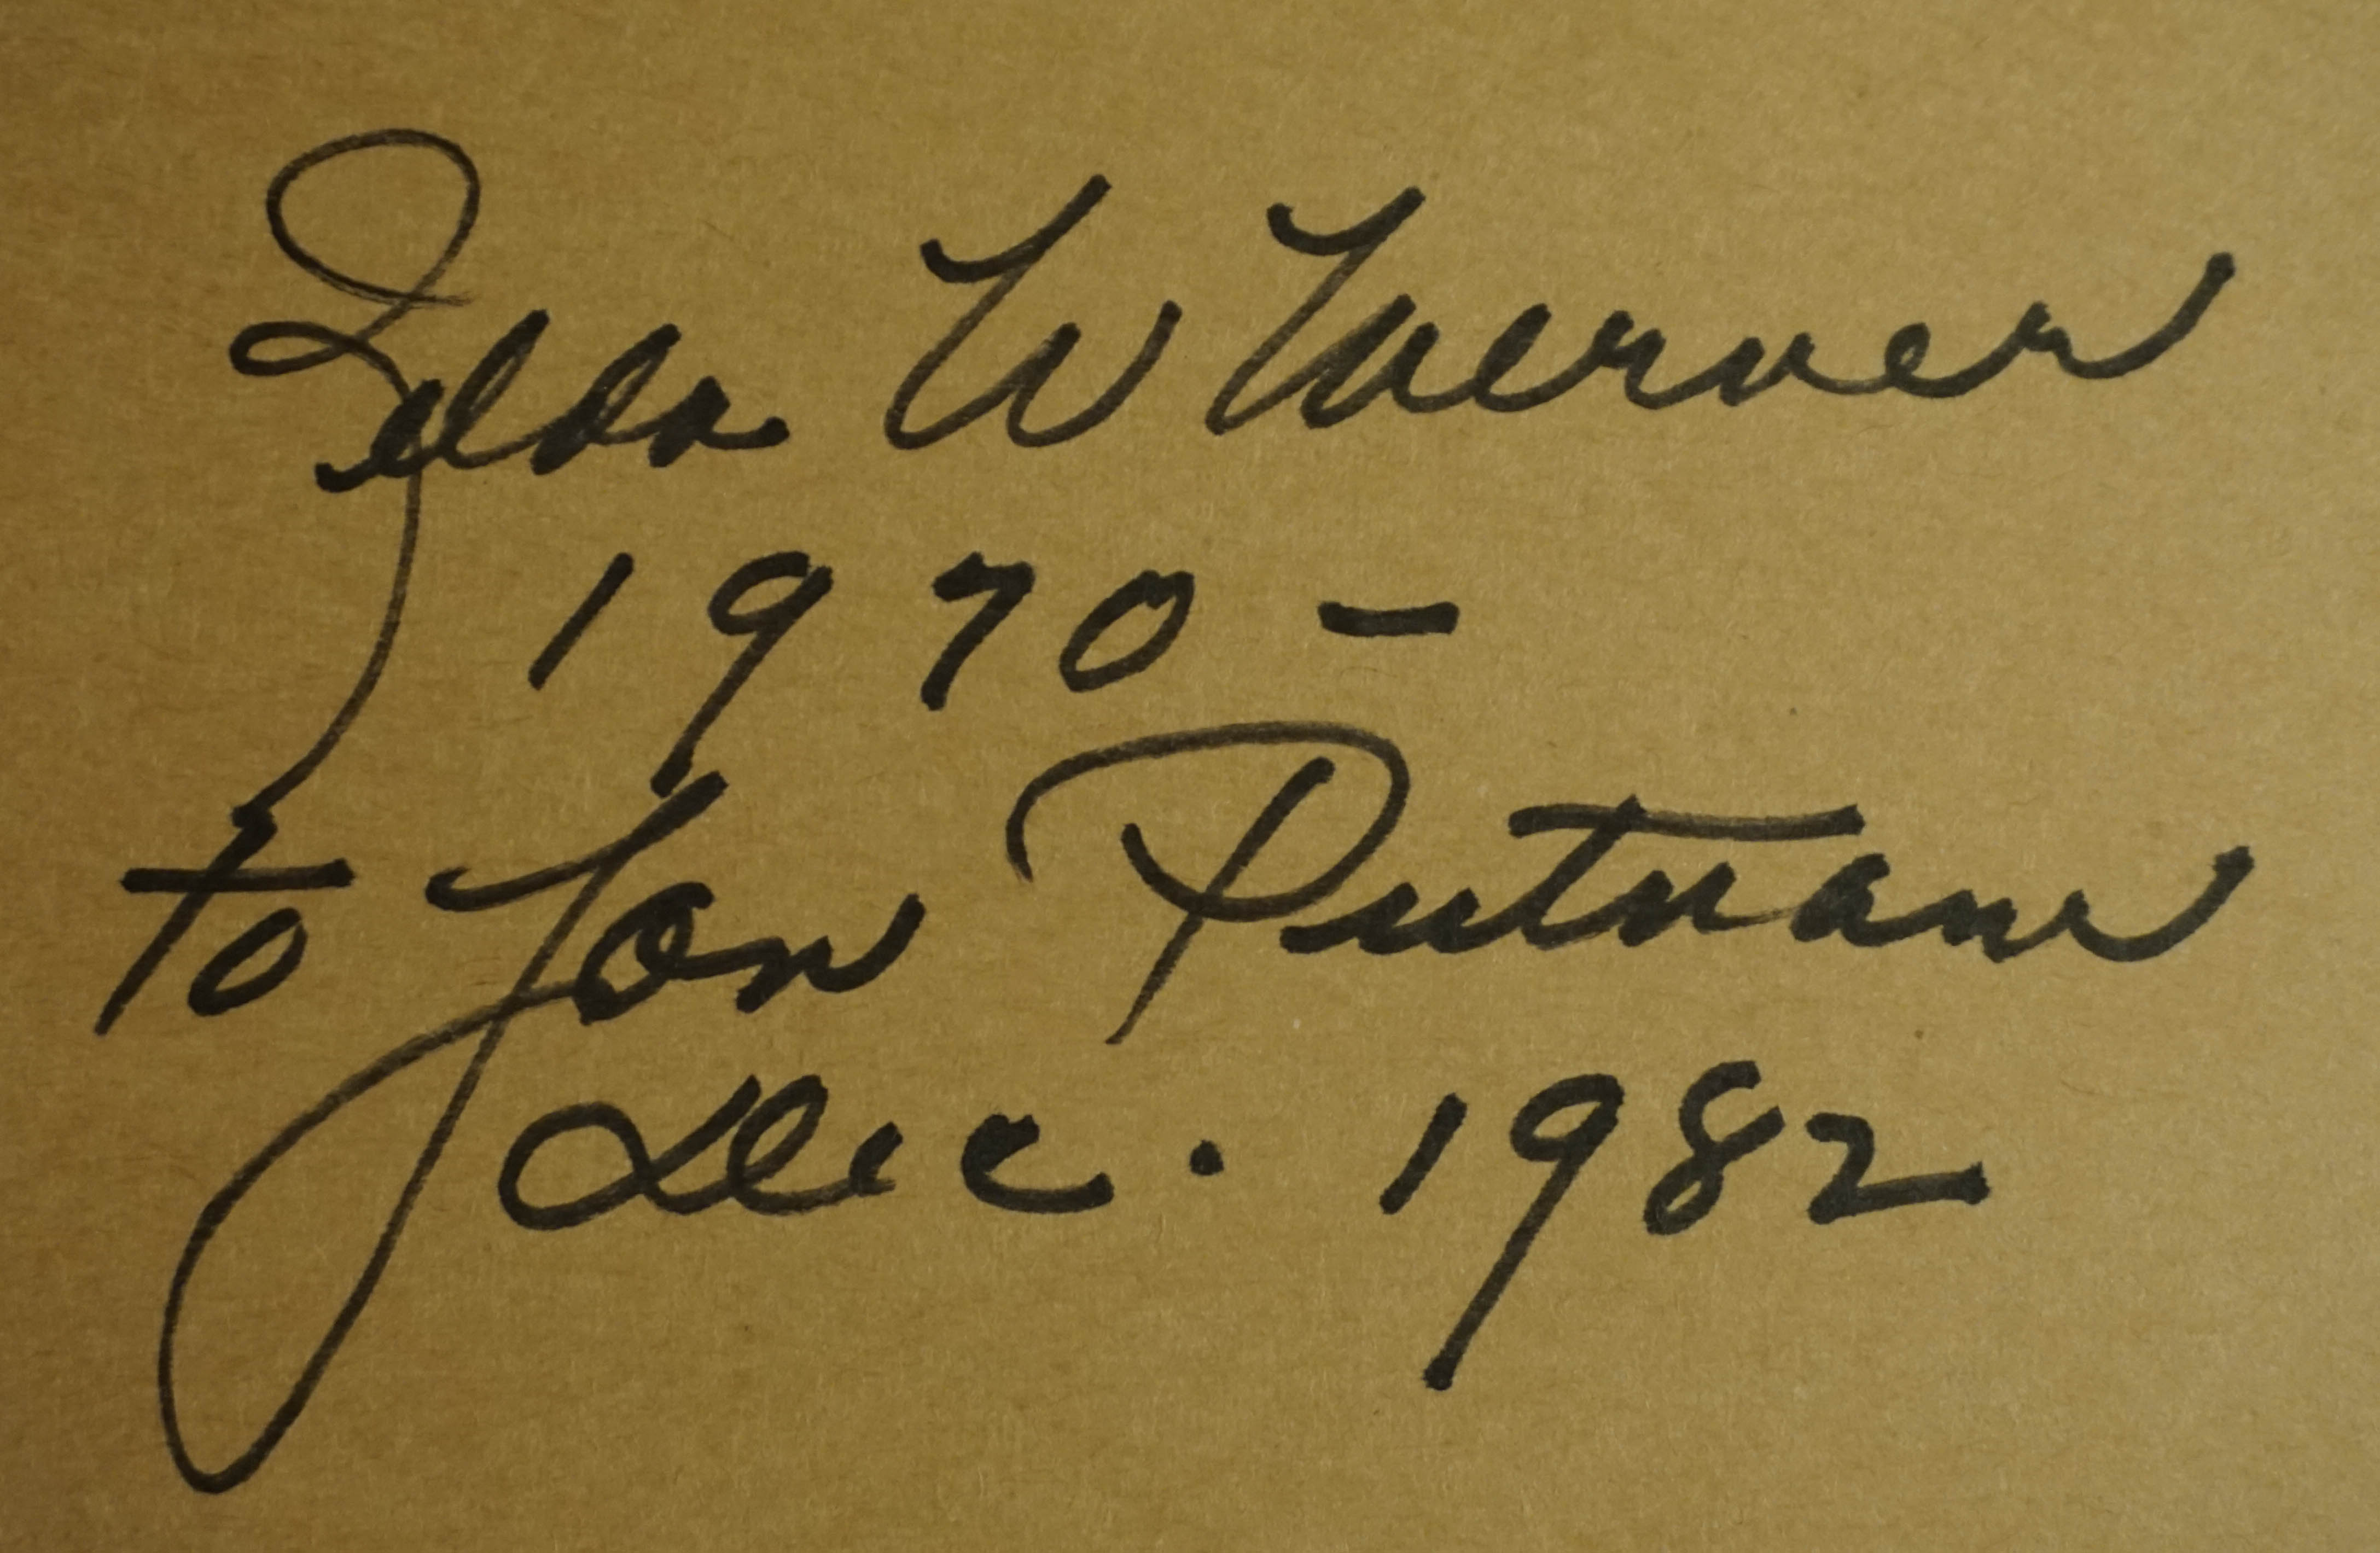 Zelda W Werner
1970 -
to Jon Putnam
Dec. 1982